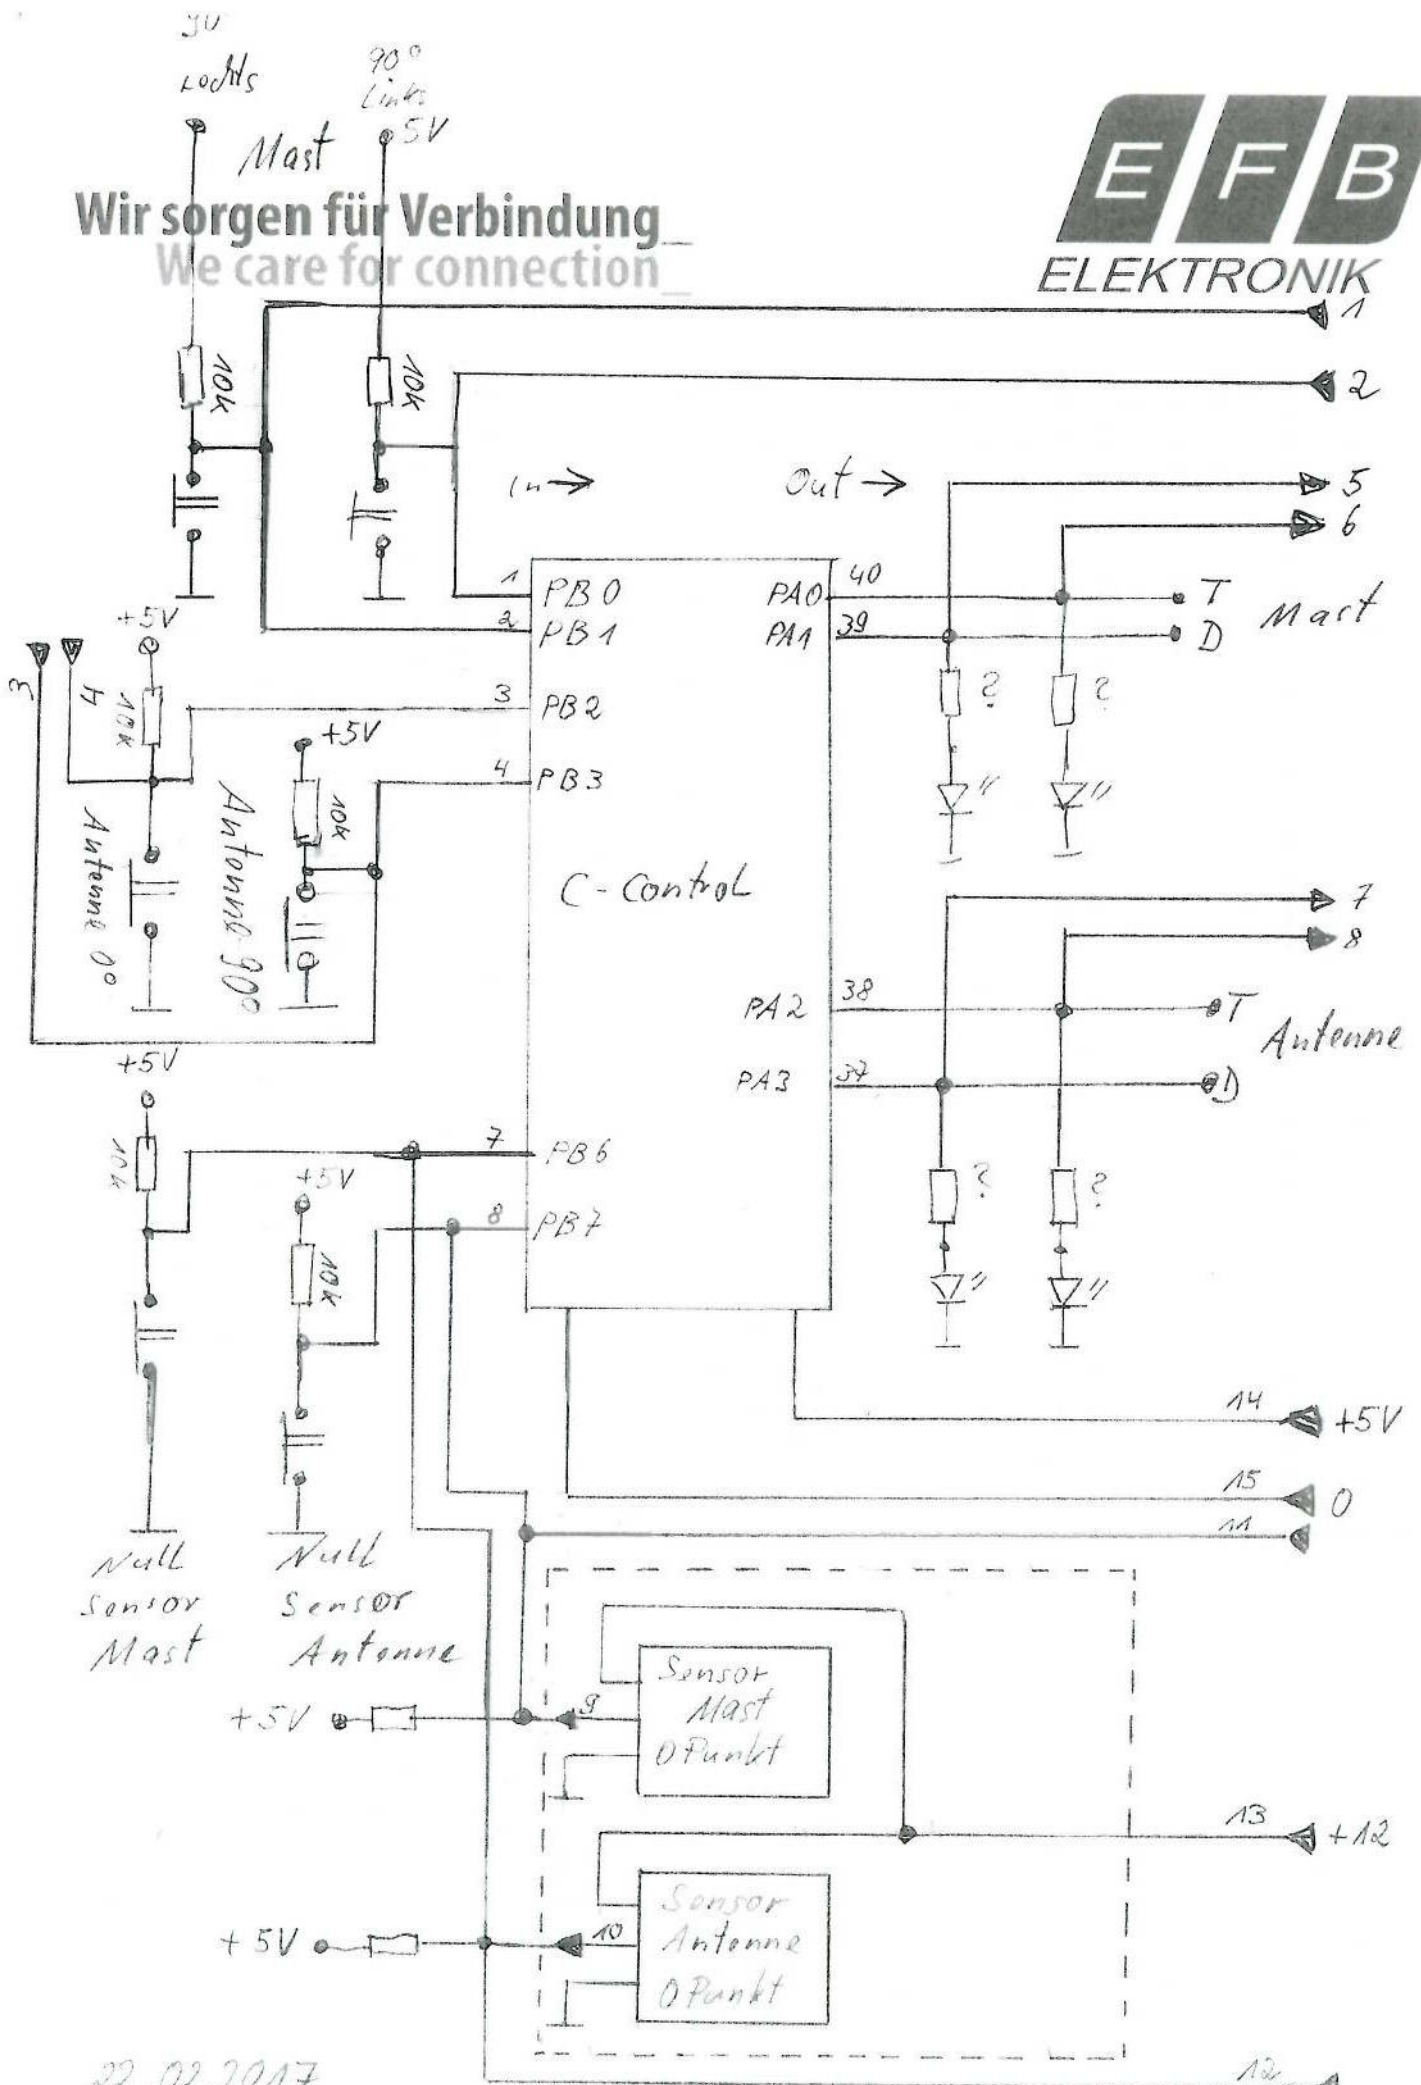 90
rechts
90°
Links
5V
Mast
Wir sorgen für Verbindung_
We care for connection_
E F B
ELEKTRONIK
1
10k
10k
2
In →
Out →
5
6
1 PB0
PA0 40
T
2 PB1
PA1 39
D
Mast
+5V
3
4
10k
3 PB2
?
?
+5V
4 PB3
10k
Antenne 0°
Antenne 90°
C-Control
7
8
PA2 38
T
Antenne
PA3 37
D
+5V
10k
7 PB6
?
?
+5V
8 PB7
10k
14
+5V
15
0
11
Null
Sensor
Mast
Null
Sensor
Antenne
Sensor
Mast
0Punkt
+5V
9
13
+12
Sensor
Antenne
0Punkt
+5V
10
22.02.2017
12